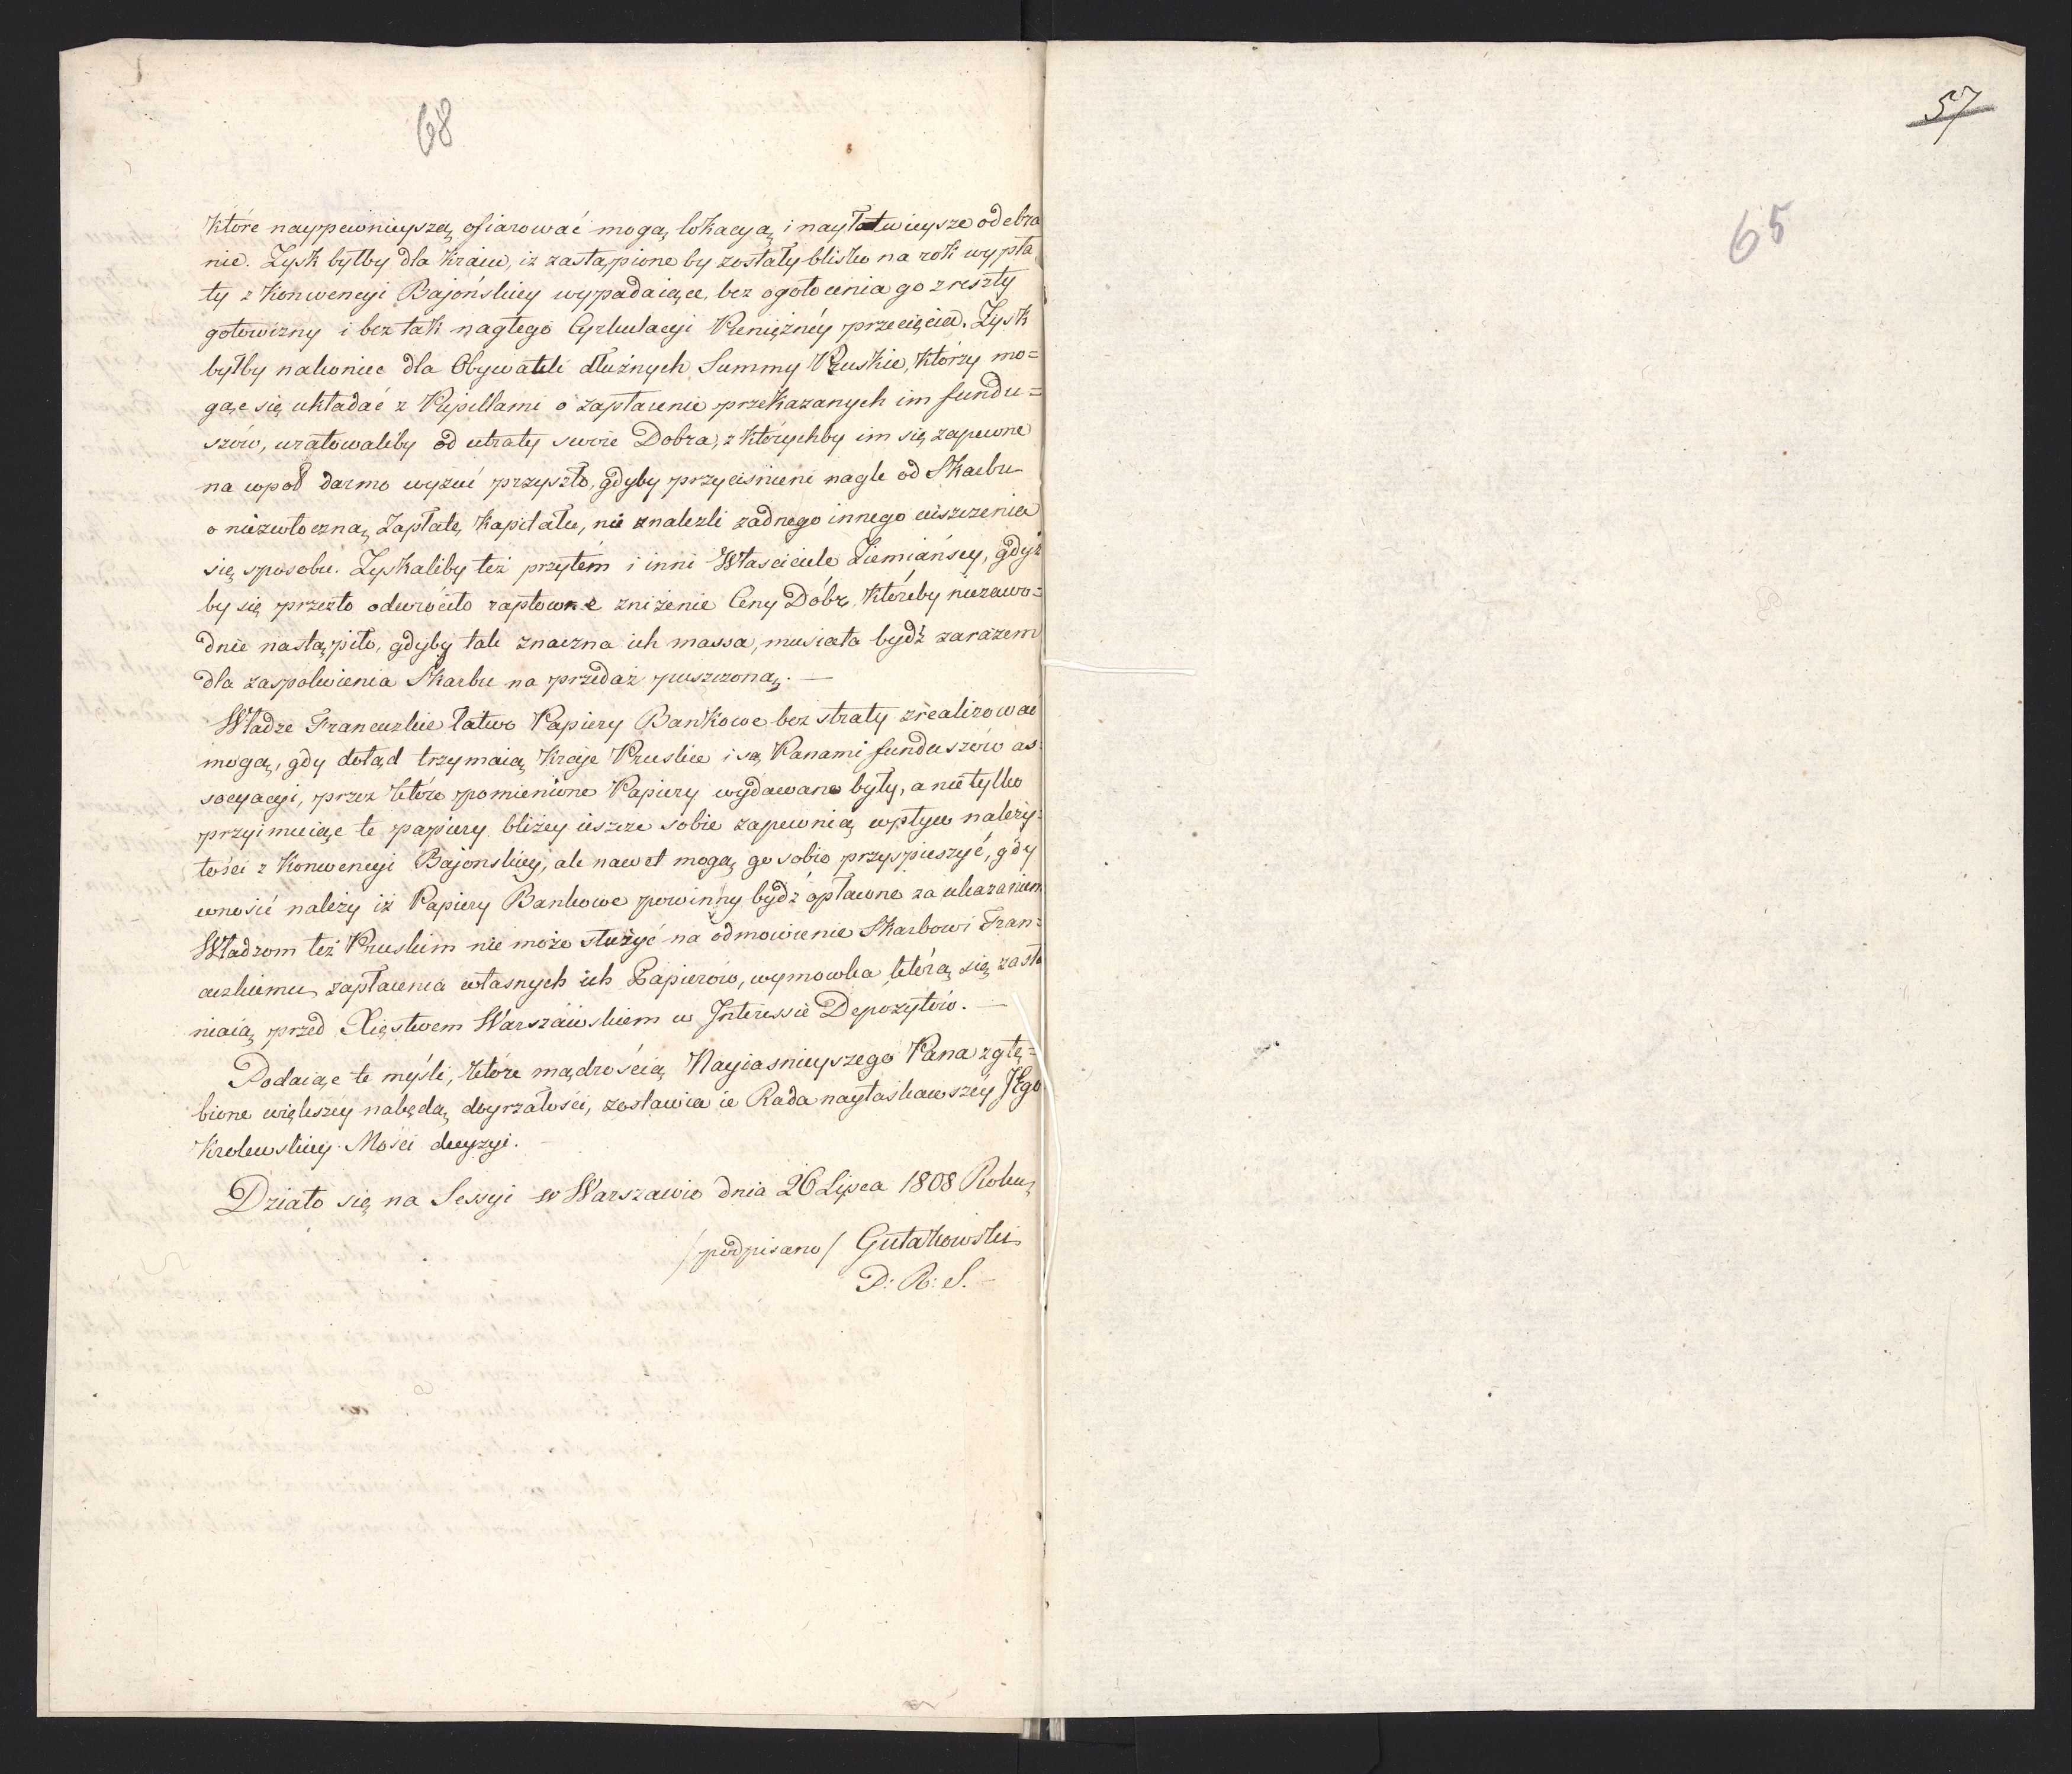 68
które naypewnieyszą ofiarować mogą lokacyą i nayłatwieysze odebra
nie. Zysk byłby dla kraiu, iż zastąpione by zostały blisko na rok wypła
ty z Konwencyi Bajońskiey wypadaiące, bez ogołocenia go z reszty
gotowizny i bez tak nagłego Cyrkulacyi Pieniężnéy przecięcia. Zysk
byłby nakoniec dla Obywateli dłużnych Summy Pruskie, którzy mo=
gąc się układać z Pupillami o zapłacenie przekazanych im fundu=
szów, uratowaliby od utraty swoie Dobra, z którychby im się zapewne
na wpół darmo wyzuć przyszło, gdyby przyciśnieni nagle od Skarbu
o niezwłoczną Zapłatę Kapitału, nie znalezli żadnego innego uiszczenia
się sposobu. Zyskaliby też przytém i inni Właściciele Ziemiańscy, gdyż
by się przezto odwróciło raptowne zniżenie Ceny Dóbr, któreby niezawo=
dnie nastąpiło, gdyby tak znaczna ich massa, musiała bydź zarazem
dla zaspokoienia Skarbu na przedaż puszczoną. —
Władze Francuzkie łatwo Papiery Bankowe bez straty zrealizować
mogą, gdy dotąd trzymaią Kraje Pruskie i są Panami funduszów as=
socyacyi, przez które pomienione Papiery wydawane były, a nietylko
przyimuiąc te papiery bliżey ieszcze sobie zapewnią wpływ należy=
tości z Konwencyi Bajońskiey, ale nawet mogą go sobie przyspieszyć, gdy
wnosić należy iż Papiery Bankowe powinny bydź opłacone za ukazaniem
Władzom też Pruskim nie może służyć na odmowienie Skarbowi Fran=
cuzkiemu zapłacenia własnych ich Papierów, wymowka którą się zasła
niaią przed Xięstwem Warszawskiem w Interessie Depozytów. —
Podaiąc te myśli, które mądrością Nayiasnieyszego Pana zgłę=
bione większey nabędą doyrzałości, zostawia ie Rada nayłaskawszéy JEgo
Krolewskiey Mości decyzyi. —
Działo się na Sessyi w Warszawie dnia 26 Lipca 1808 Roku,
/podpisano/ Gutakowski
D: R: S. —
57
65